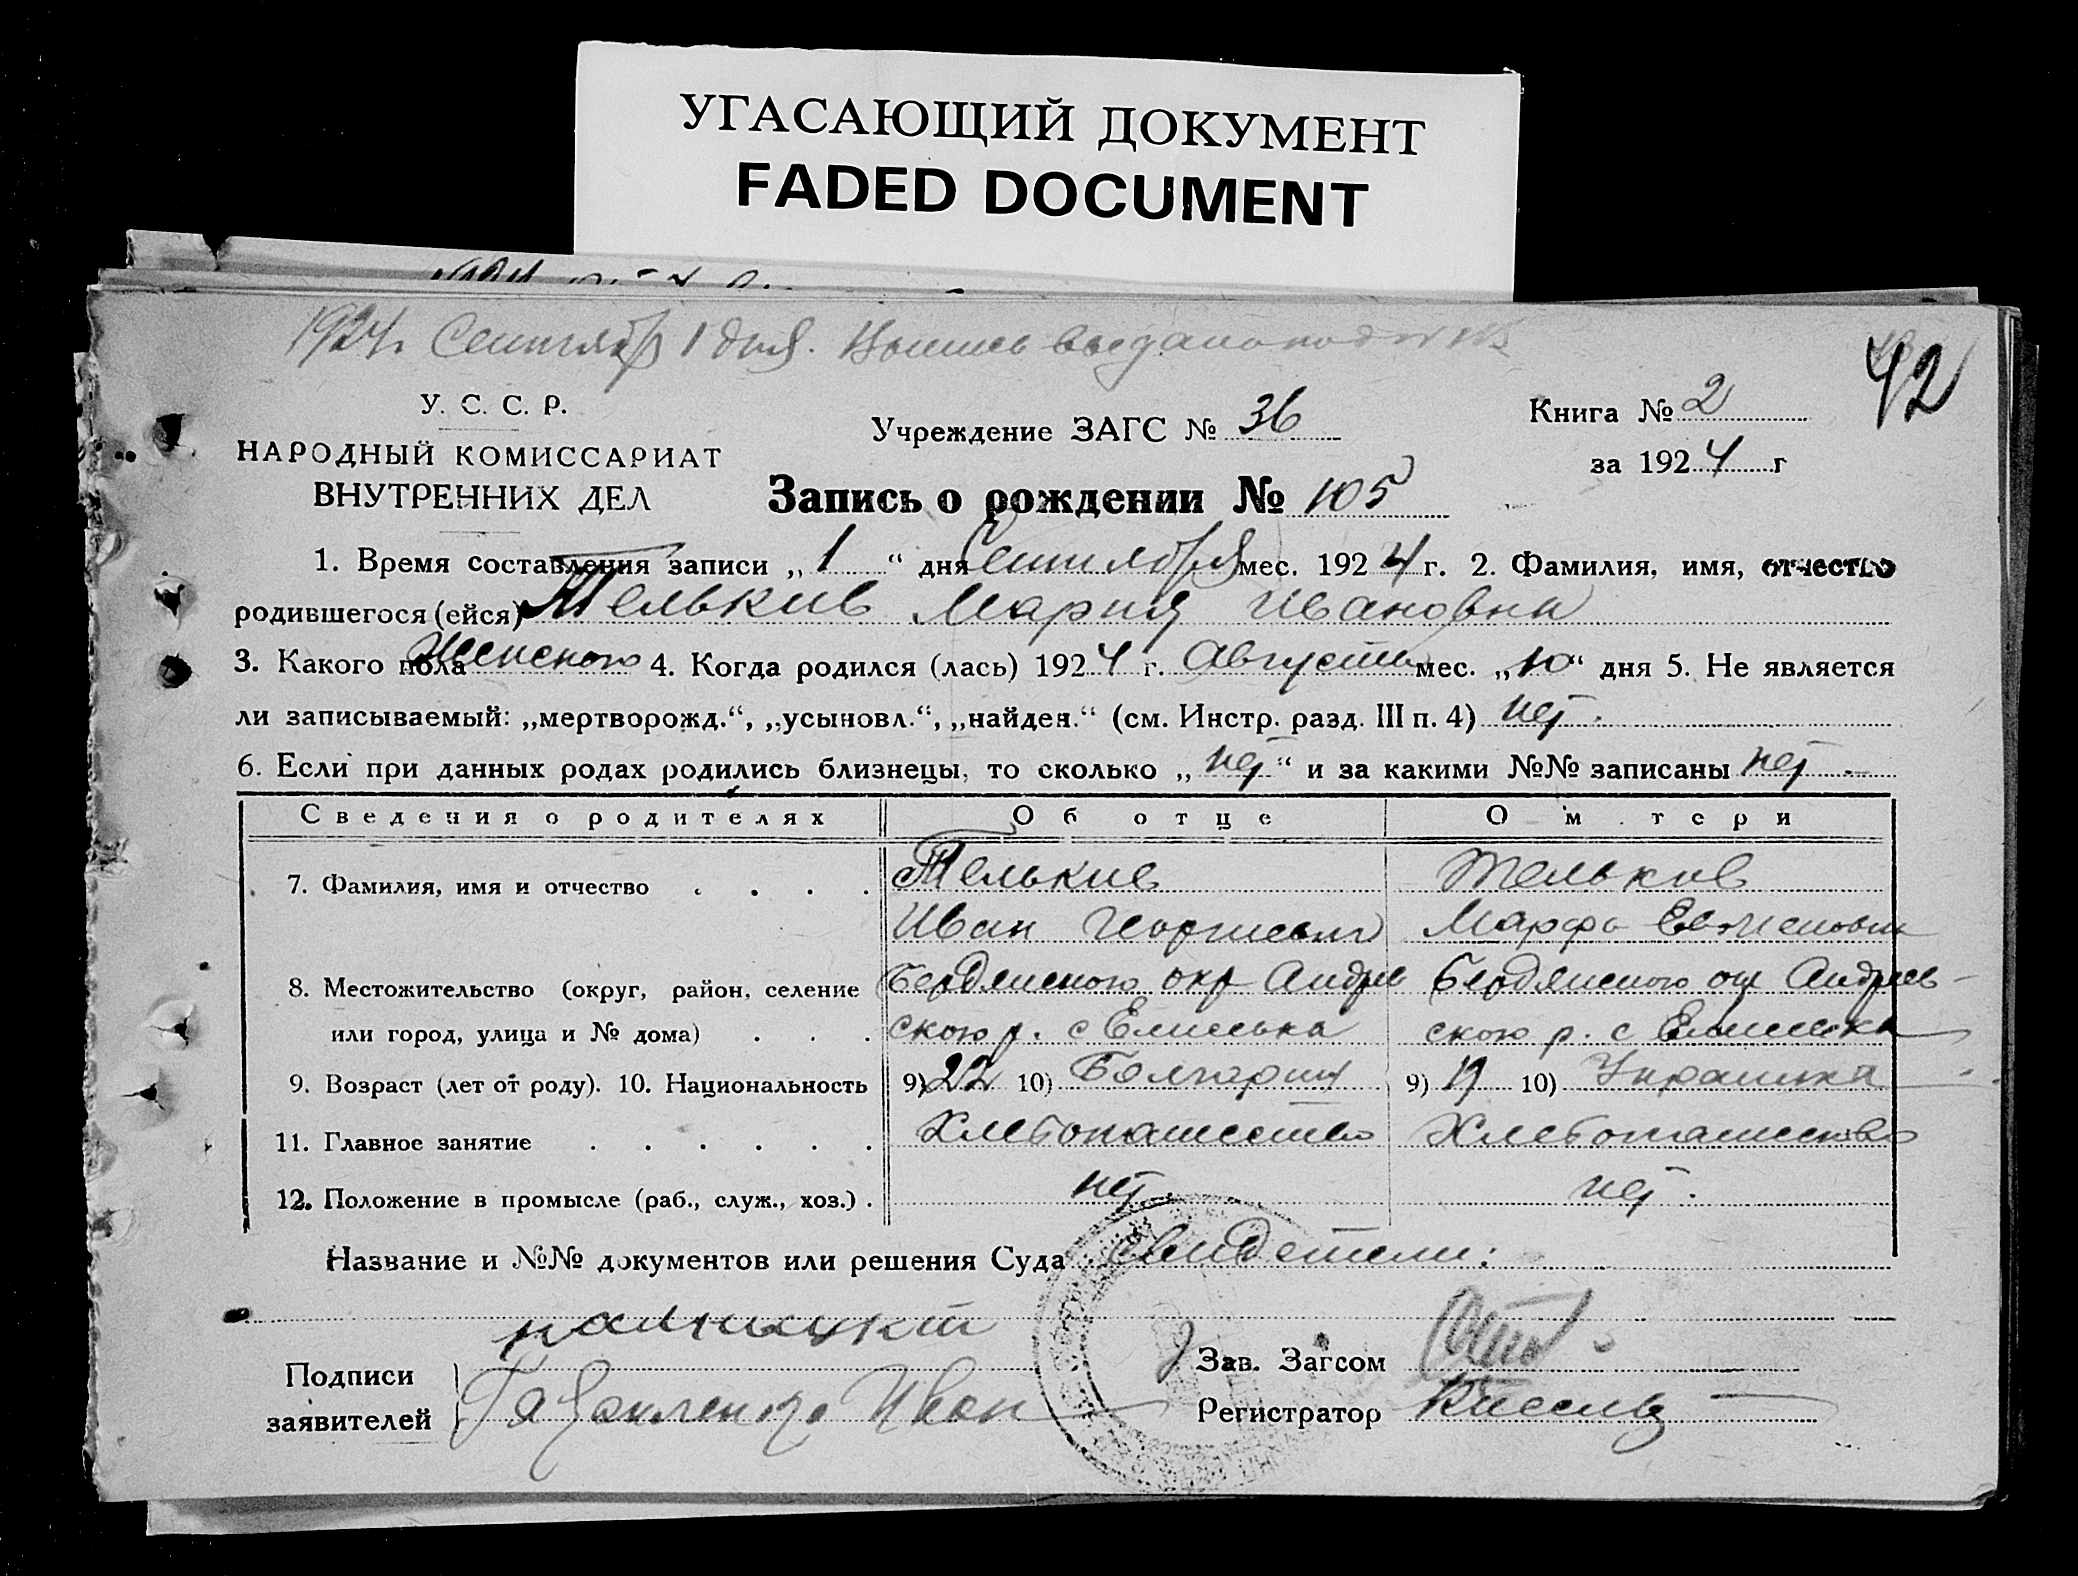 УГАСАЮЩИЙ ДОКУМЕНТ
FADED DOCUMENT
1924 Сентября 1 дня. Выпись выдана под №
42
У. С. С. Р.
НАРОДНЫЙ КОМИССАРИАТ
ВНУТРЕННИХ ДЕЛ
Учреждение ЗАГС № 36
Книга № 2
за 1924 г
Запись о рождении № 105
1. Время составления записи „ 1 “ дня Сентября мес. 1924 г. 2. Фамилия, имя, отчество
родившегося (ейся) Телькив Мария Ивановна
3. Какого пола Женского 4. Когда родился (лась) 1924 г. Августа мес. „10“ дня 5. Не является
ли записываемый: „мертворожд.“, „усыновл.“, „найден.“ (см. Инстр. разд. III п. 4) нет.
6. Если при данных родах родились близнецы, то сколько „ нет “ и за какими №№ записаны нет.
Сведения о родителях Об отце О м тери
7. Фамилия, имя и отчество . . . . Телькив Тельков
Иван Марфа
8. Местожительство (округ, район, селение Бердянского окр Андрев Бердянского окр Андреев-
или город, улица и № дома) . . . ского р. с ского р. с
9. Возраст (лет от роду). 10. Национальность 9) 22 10) 9) 19 10)
11. Главное занятие . . . . . . Хлебопашество Хлебопашество
12. Положение в промысле (раб., служ., хоз.) . нет. нет.
Название и №№ документов или решения Суда свидетели:
Подписи
заявителей
Гавриленко Иван
Зав. Загсом
Регистратор